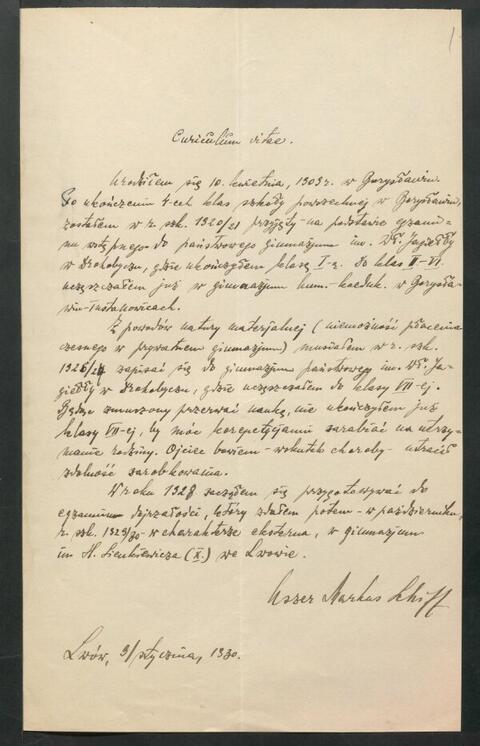 1
Curiculum vitae.
Urodziłem się 10. kwietnia, 1909 r. w Borysławiu.
Po ukończeniu 4-ech klas szkoły powszechnej w Borysławiu,
zostałem w r. szk. 1920/21 przyjęty - na podstawie egzami-
nu wstępnego do państwowego gimnazjum im. Wł. Jagiełły
w Drohobyczu, gdzie ukończyłem klasę I-ą. Do klas II-VI.
uczęszczałem już w gimnazjum hum.-koeduk. w Borysła-
wiu-Tustanowicach.
Z powodów natury materjalnej (niemożność płacenia
czesnego w prywatnem gimnazjum) musiałem w r. szk.
1926/27 zapisać się do gimnazjum państwowego im. Wł. Ja-
giełły w Drohobyczu, gdzie uczęszczałem do klasy VII-ej.
Będąc zmuszony przerwać naukę, nie ukończyłem już
klasy VII-ej, by móc korepetycjami zarabiać na utrzy-
manie rodziny. Ojciec bowiem - wskutek choroby - utracił
zdolność zarobkowania.
W roku 1928 zacząłem się przygotowywać do
egzaminu dojrzałości, który zdałem potem - w październiku,
r. szk. 1929/30 - w charakterze eksterna, w gimnazjum
im H. Sienkiewicza (X.) we Lwowie.
Uszer Markus Schiff
Lwów, 9/ stycznia, 1930.